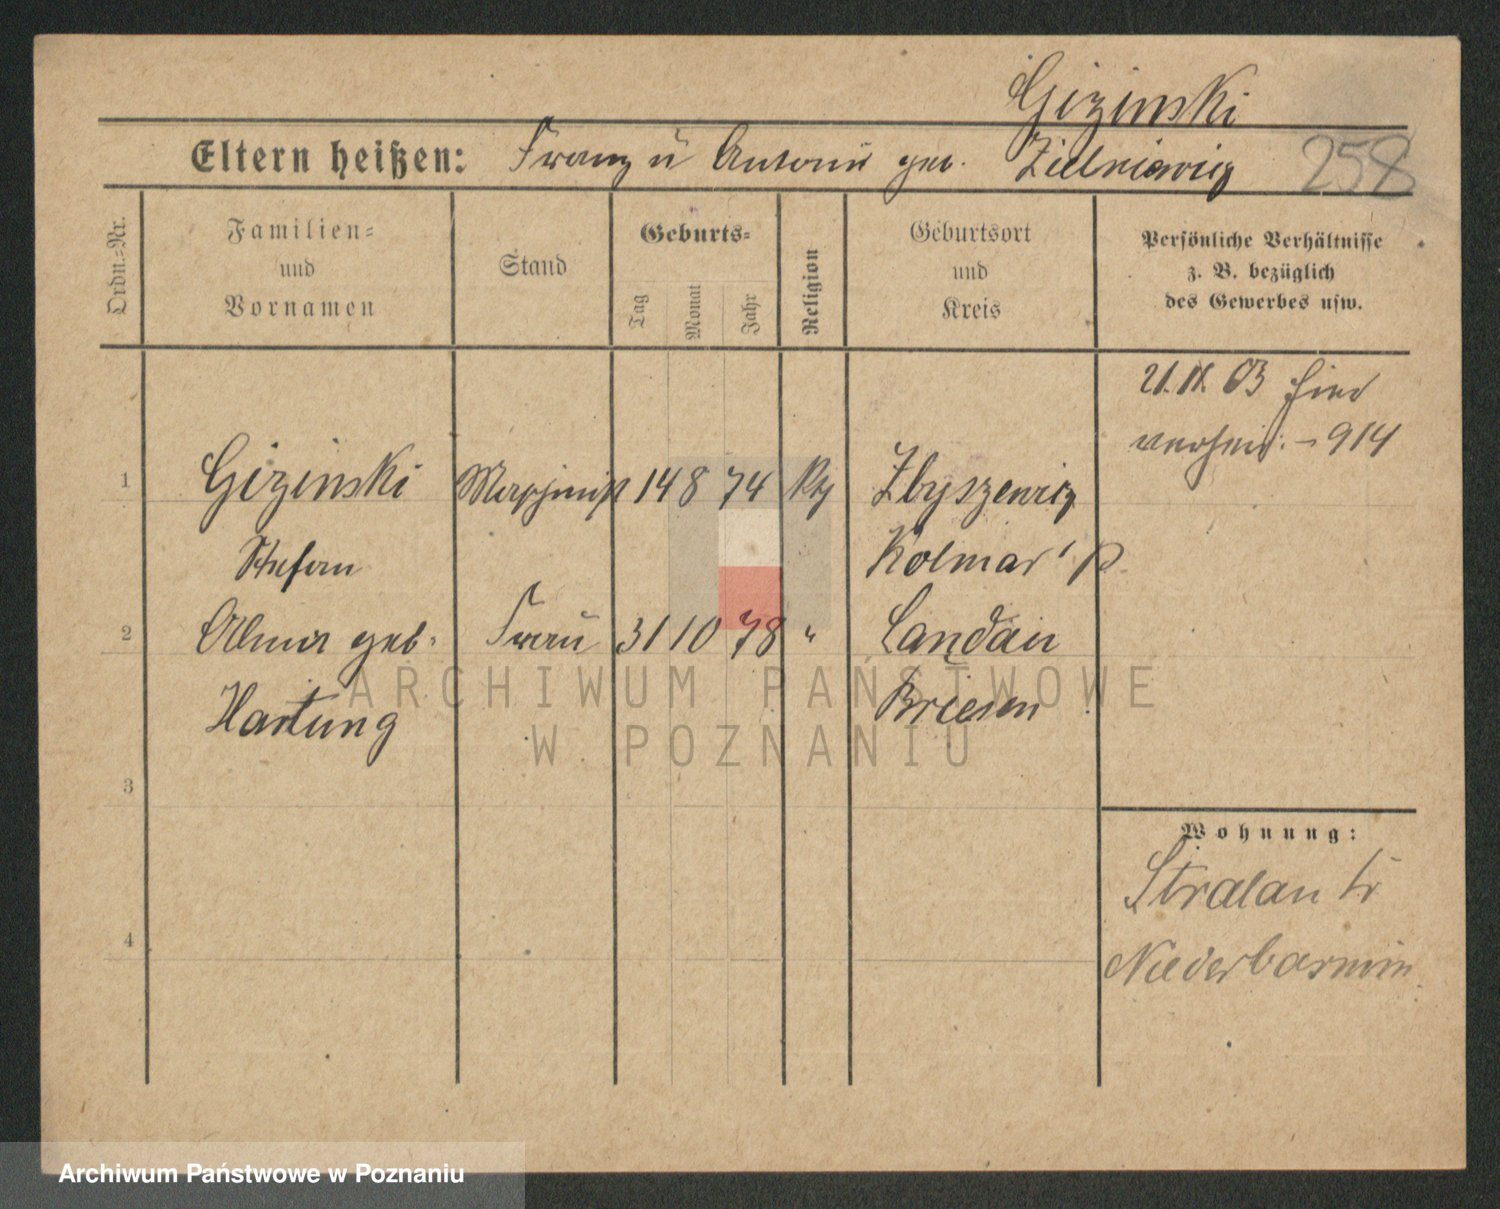 Gizinski
Eltern heißen: Franz u Antonie geb. Zielniewicz 258
Ordn.-Nr. Familien- und Vornamen Stand Geburts- Tag Monat Jahr Religion Geburtsort und Kreis Persönliche Verhältnisse z. B. bezüglich des Gewerbes usw.
21. 11. 03 hier
verheir. - 914
1 Gizinski Maschinist 14 8 74 Zbyszewicz
Stefan Kolmar i/P.
2 Alma geb. Frau 31 10 78 " Landau
Hartung Briesen
3
Wohnung:
Stralau Kr
4
Niederbarnim
ARCHIWUM PAŃSTWOWE
W POZNANIU
Archiwum Państwowe w Poznaniu